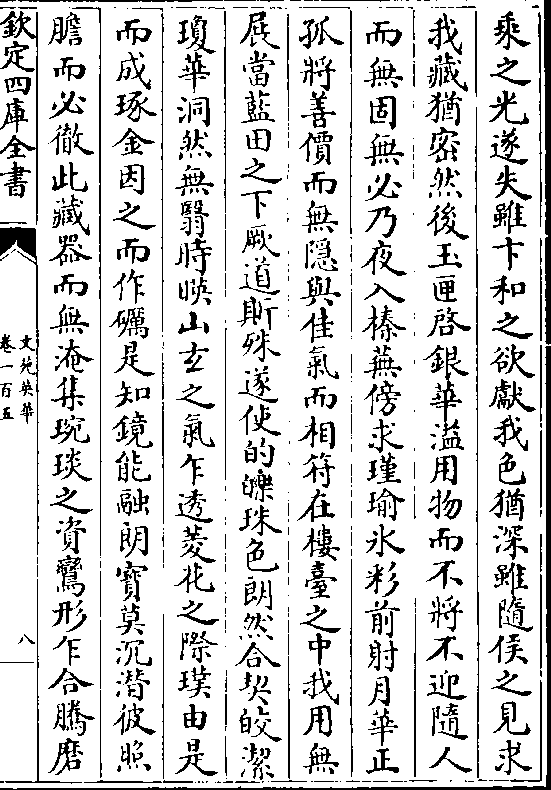 乘之光遂失雖卞和之欲獻我色猶深雖隨侯之見求
我藏猶密然後玉匣啓銀華溢用物而不將不迎隨人
而無固無必乃夜入榛蕪傍求瑾瑜氷彩前射月華正
孤將善價而無隱與佳氣而相符在樓臺之中我用無
展當藍田之下厥道斯殊遂使的皪珠色朗然合契皎潔
瓊華洞然無翳時映山玄之氣乍透菱花之際璞由是
而成琢金因之而作礪是知鏡能融朗寳莫沉潛彼照
膽而必徹此藏器而無淹集琬琰之資鸞形乍合騰磨
欽定四庫全書
文苑英華
卷一百五
八